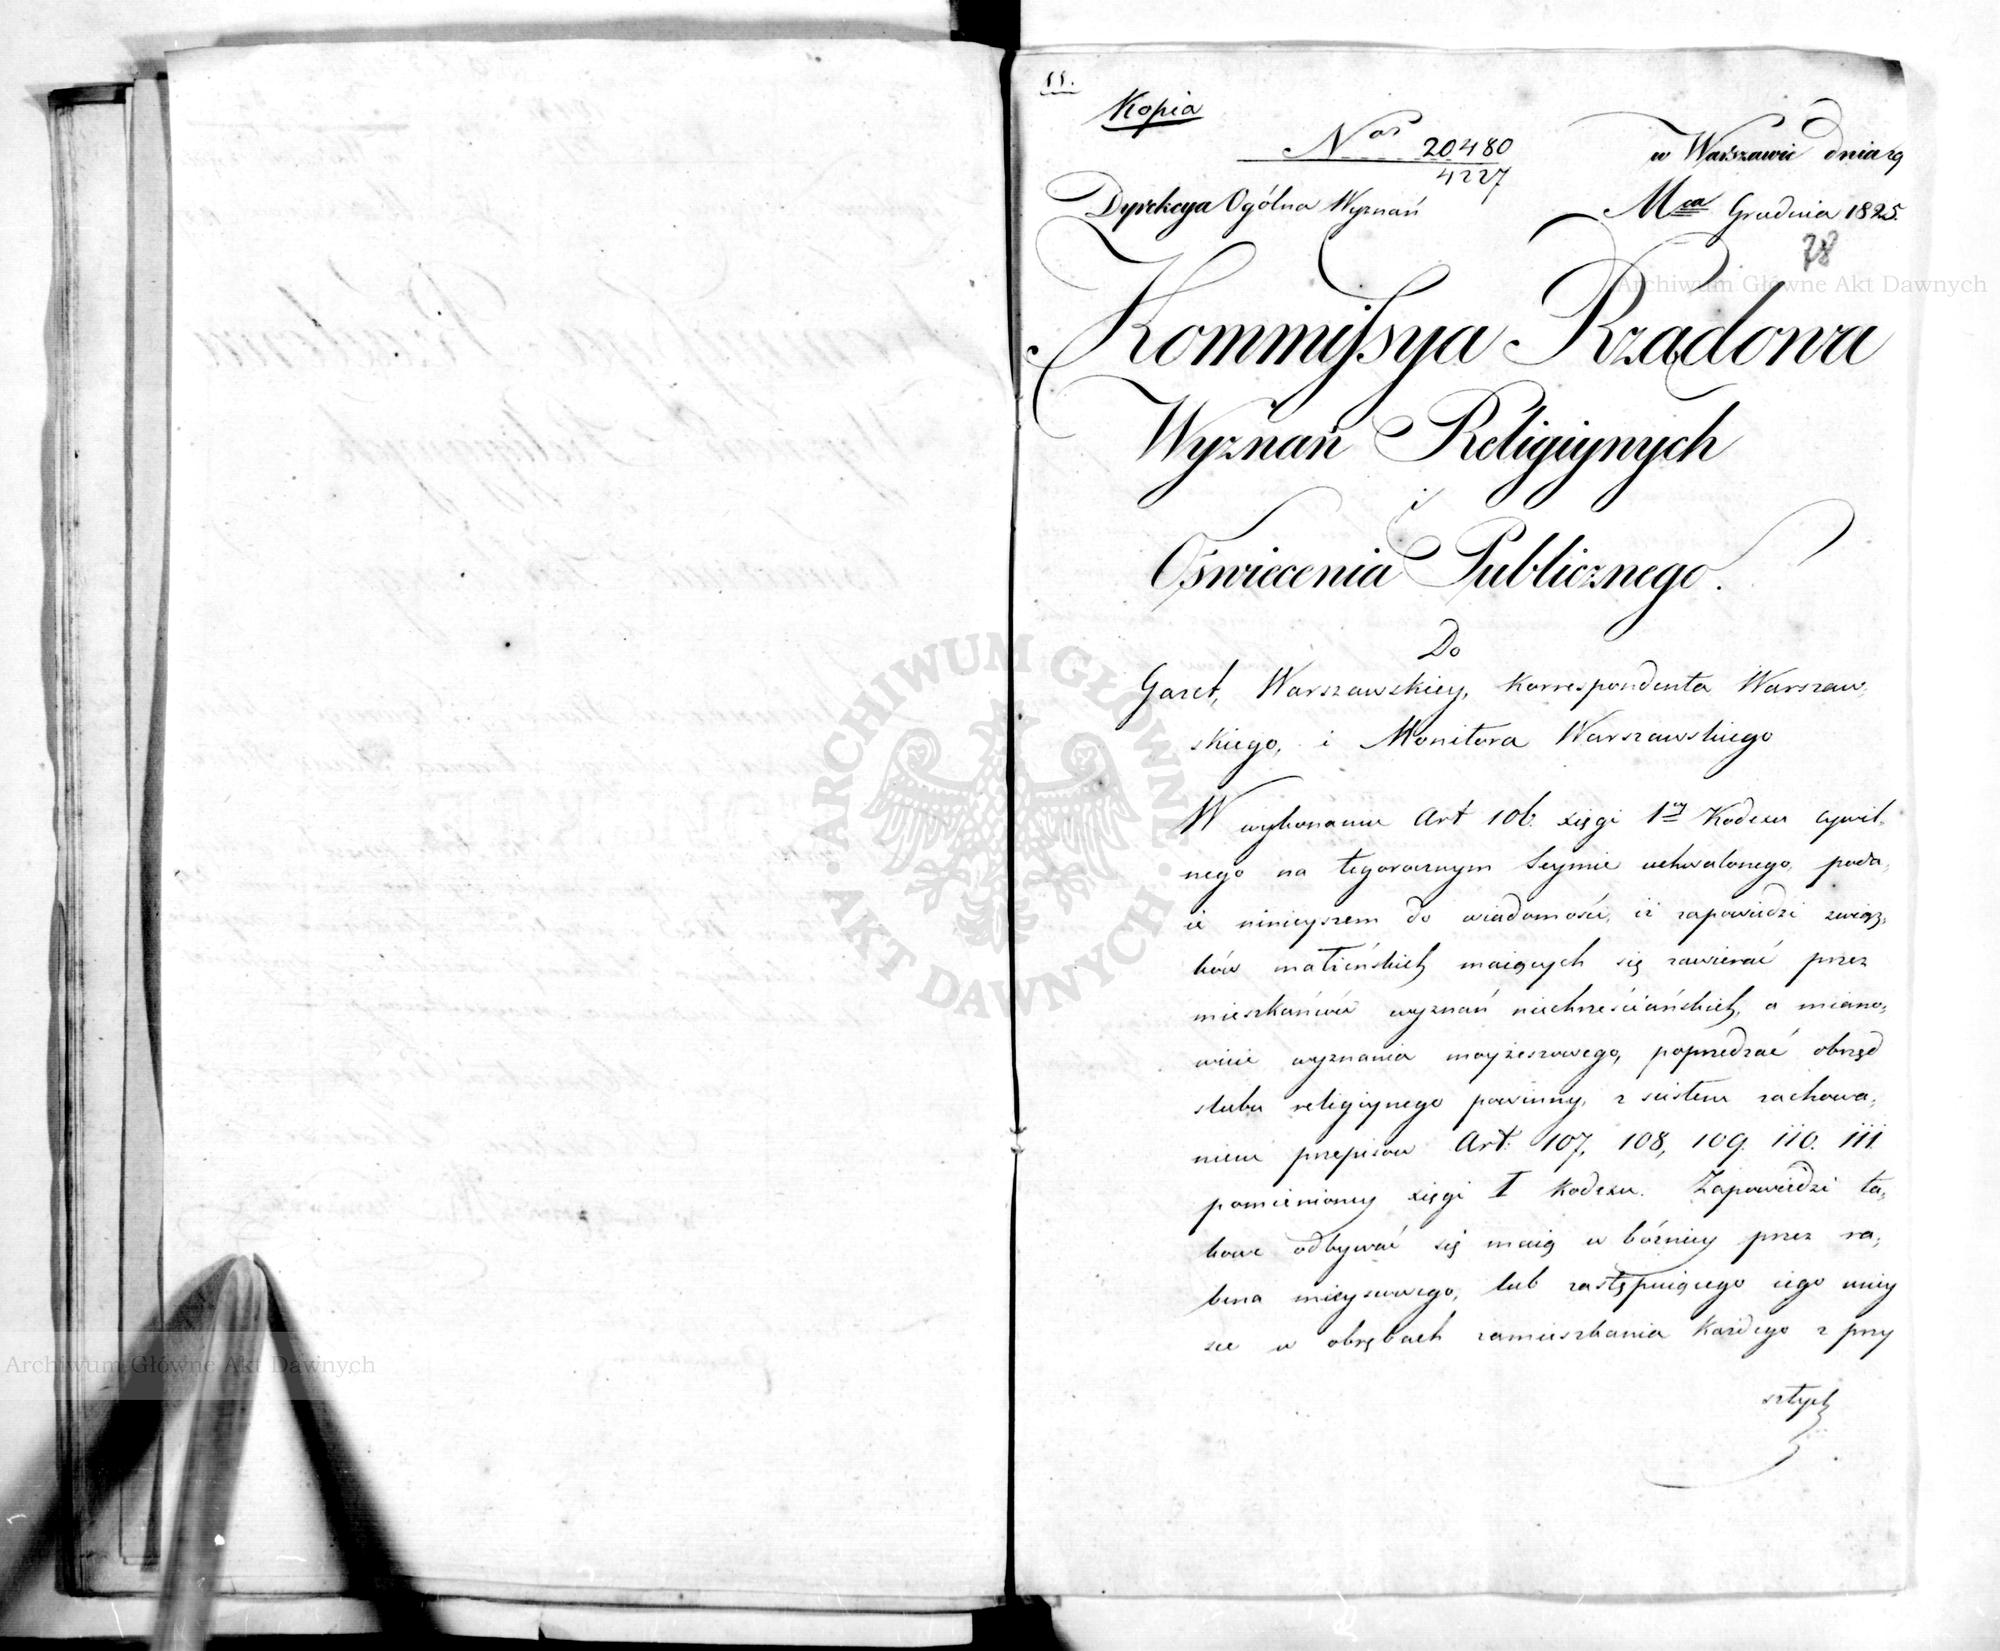 11.
Kopia
Nos 20480
4227
w Warszawie dnia 29
Dyrekcya Ogólna Wyznań
Mca Grudnia 1825.
78
Kommissya Rządowa
Wyznań Religiynych
i
Oświecenia Publicznego.
Do
Gazet, Warszawskiey, Korrespondenta Warszaw-
skiego, i Monitora Warszawskiego
W wykonaniu Art 106. xięgi 1ey Kodexu cywil-
nego na tegorocznym Seymie uchwalonego, poda-
ie ninieyszem do wiadomości, iż zapowiedzi związ-
ków małżeńskich maiących się zawierać przez
mieszkańców wyznań niechrześciańskich, a miano-
wicie wyznania mojżeszowego, poprzedzać obrzęd
ślubu religiynego powinny, z ścisłem zachowa-
niem przepisów Art: 107, 108, 109. 110. 111.
pomienioney xięgi I Kodexu. Zapowiedzi ta-
kowe odbywać się maią w bóźnicy przez ra-
bina mieyscowego, lub zastępuiącego iego miey
sce w obrębach zamieszkania każdego z przy
szłych
Archiwum Główne Akt Dawnych
ARCHIWUM GŁÓWNE · AKT DAWNYCH ·
Archiwum Główne Akt Dawnych